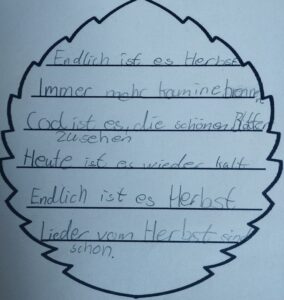 Endlich ist es Herbst
Immer mehr kamine brennen
Cool ist es, die schönen Blätter
zu sehen
Heute ist es wieder kalt
Endlich ist es Herbst
Lieder vom Herbst sind
schön.